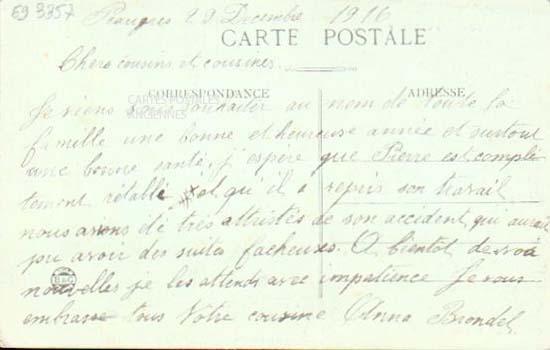 69 3357
Peaugres 29 Decembre 1916
CARTE POSTALE
Chers cousins et cousines.
CORRESPONDANCE ADRESSE
CARTES POSTALES
ANCIENNES
Je viens vous souhaiter au nom de toute la
famille une bonne et heureuse année et surtout
une bonne santé, j'espère que Pierre est complè
tement rétabli et qu'il a repris son travail
nous avons été très attristés de son accident qui aurait
pu avoir des suites facheuses. A bientot de vos
nouvelles je les attends avec impatience Je vous
embrasse tous Votre cousine Anna Brondel